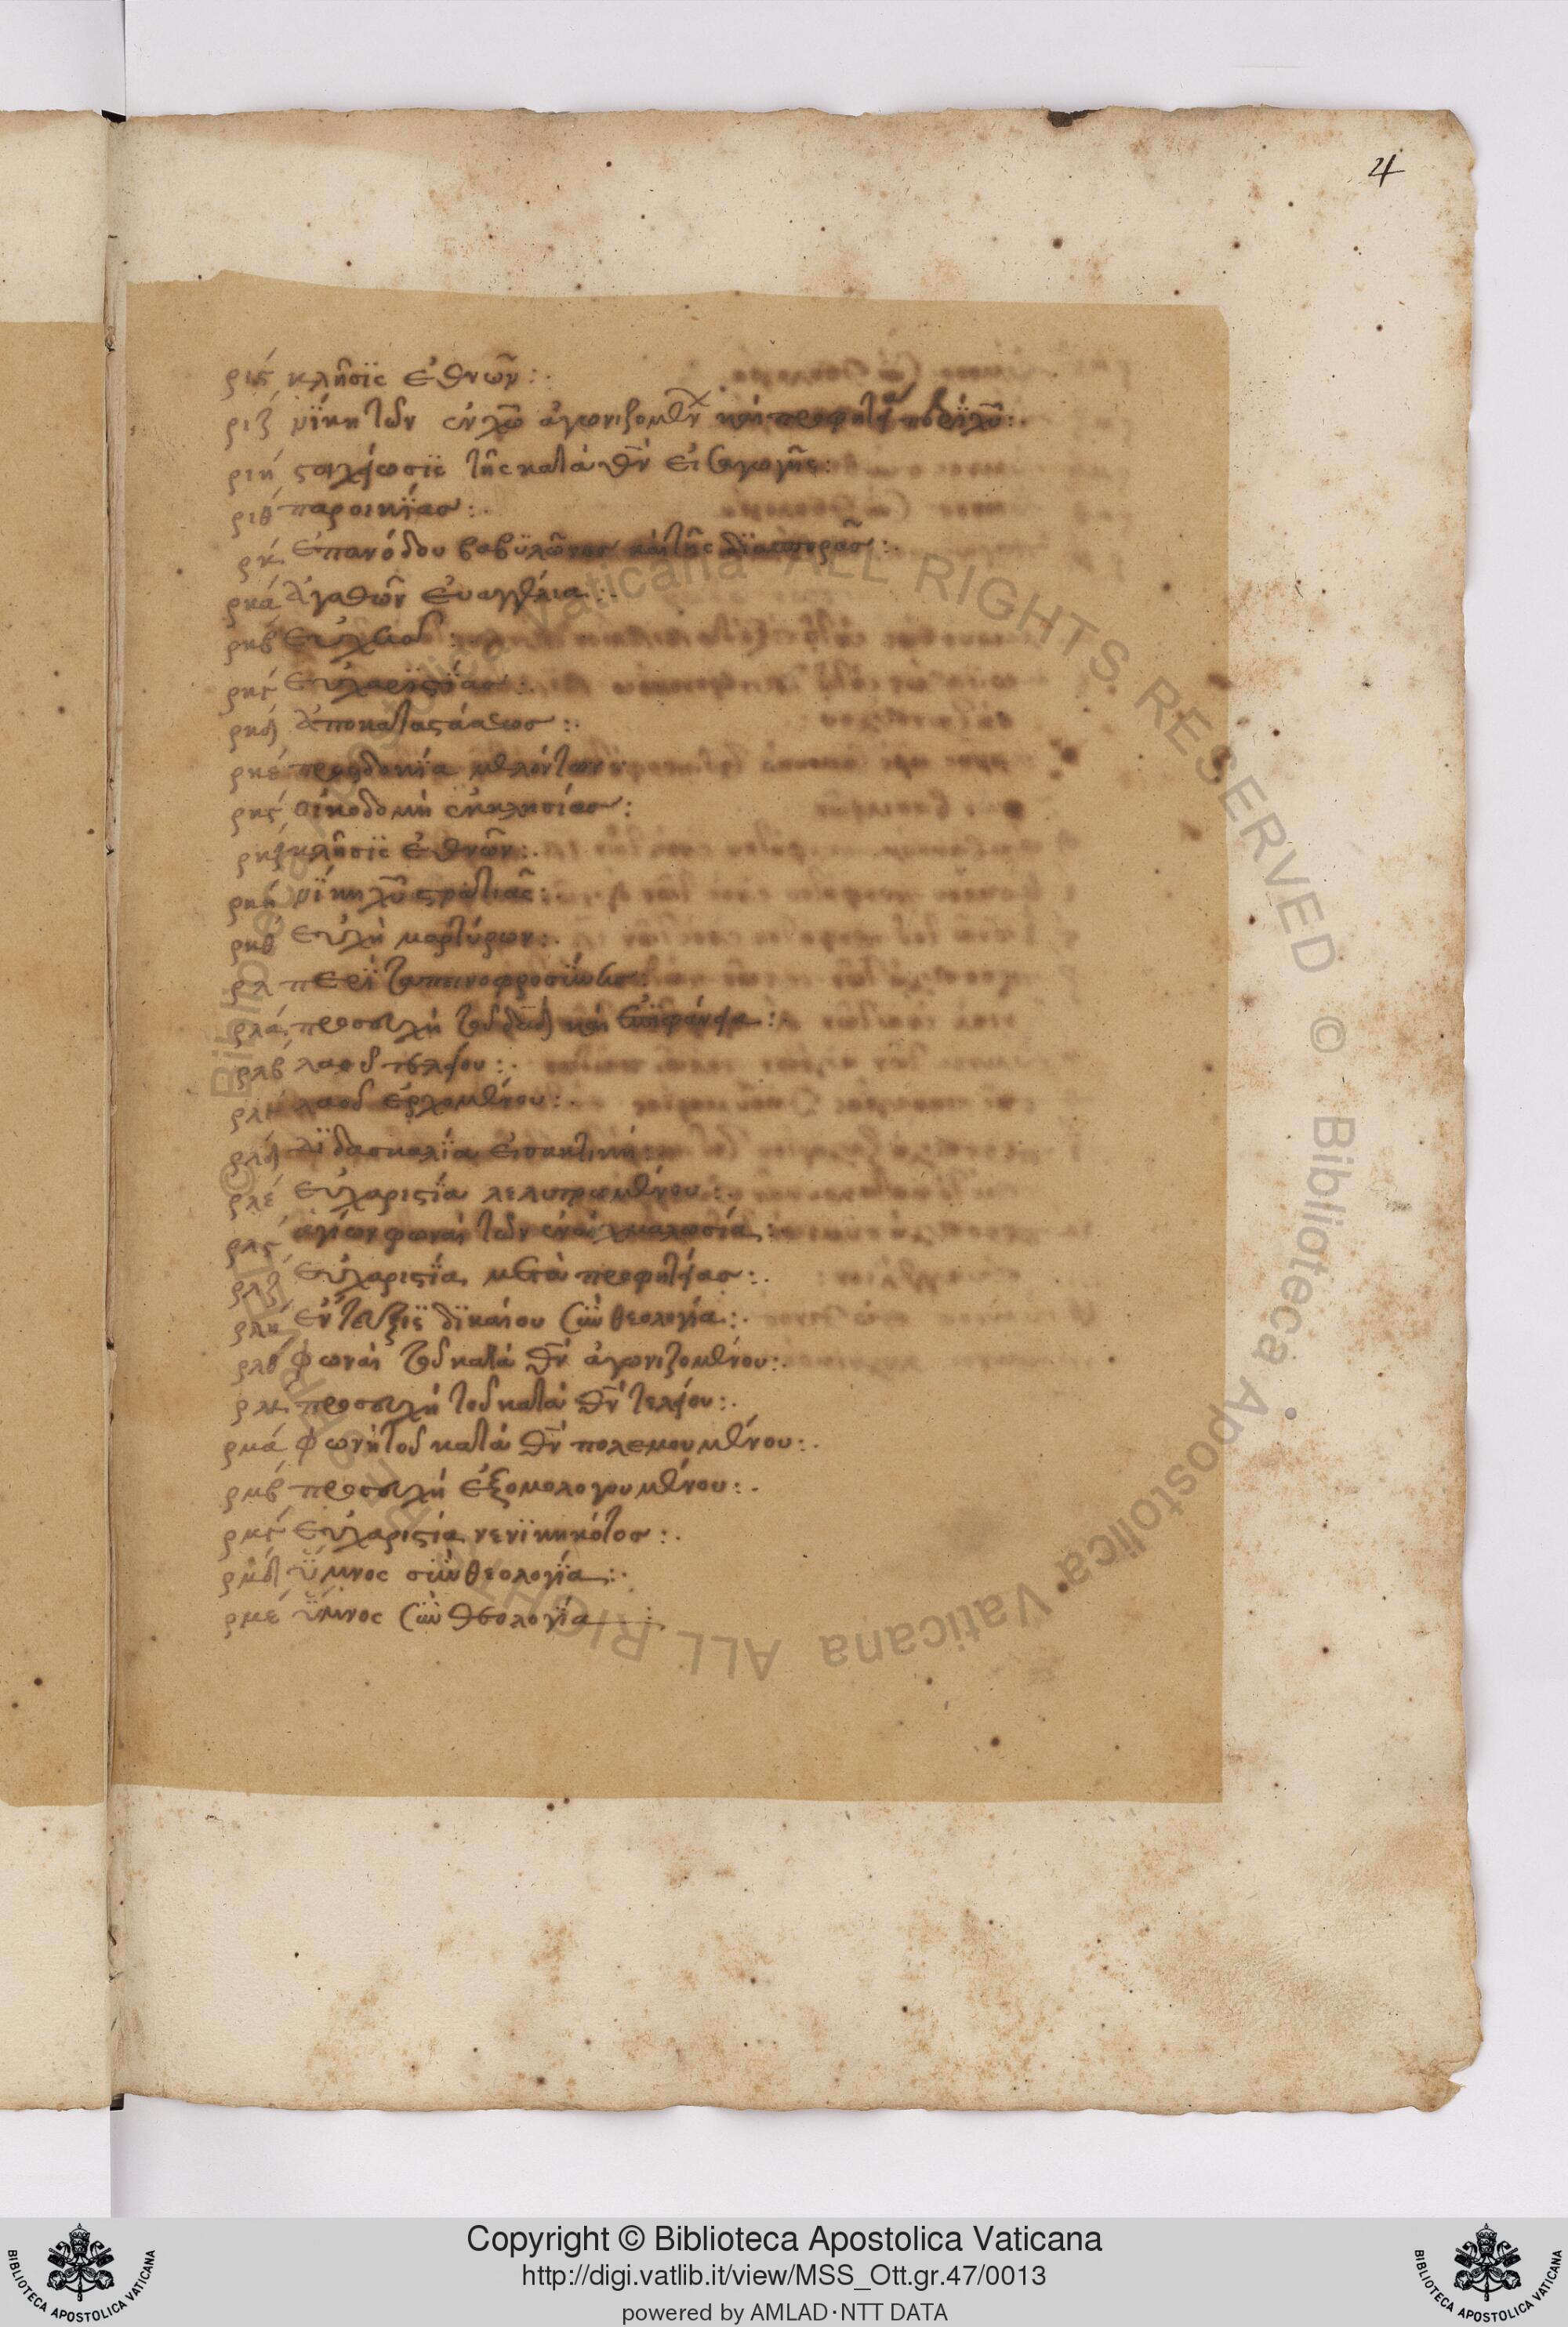 4
ριϛ κλῆσϊς ἐθνῶν:.
ριζ νϊκη τῶν ἐν χῶ ἀγωνιζομεν καὶ προφητεία περὶ χῦ:.
ριη στοιχείωσϊς τῆς κατὰ θν εἰσαγωγῆς:
ριθ παροικϊας:.
ρκ ἐπανόδου βαβϋλῶνος καὶ τῆς διασπορᾶς:.
ρκα ἀγαθῶν εὐαγγέλια:.
ρκβ
ρκγ εὐχαρϊστϊας:.
ρκδ ἀποκαταστάσεως:.
ρκε προσδοκϊα μελλόντων:
ρκϛ οἰκοδομὴ ἐκκλησίας:
ρκζ κλῆσϊς ἐθνῶν:.
ρκη νϊκη χῦ στρατιᾶς:
ρκθ εὐχὴ μαρτύρων:.
ρλ περὶ ταπεινοφροσύνης:
ρλα προσευχὴ τοῦ δαδ καὶ ἐπϊφάνεια:
ρλβ λαοῦ τελείου:.
ρλγ λαοῦ ἐρχομένου:.
ρλδ διδασκαλϊα εἰσακτικὴ:.
ρλε εὐχαριστϊα λελυτρωμένου:.
ρλϛ ἁγίων φωναὶ τῶν ἐν αἰχμαλωσία:
ρλζ εὐχαριστϊα μετὰ προφητείας:.
ρλη ἔντευξϊς δϊκαίου σὺν θεολογϊα:.
ρλθ φωναὶ τοῦ κατὰ θν ἀγωνιζομένου:.
ρμ προσευχὴ τοῦ κατὰ θν τελείου:.
ρμα φωνὴ τοῦ κατὰ θν πολεμουμένου:.
ρμβ προσευχὴ ἐξομολογουμένου:.
ρμγ εὐχαριστία νενϊκηκότος:.
ρμδ ὕμνος σὺν θεολογϊα:.
ρμε ὕμνος σὺν θεολογϊα:
© Biblioteca Apostolica Vaticana ALL RIGHTS RESERVED © Biblioteca Apostolica Vaticana ALL RIGHTS RESERVED
BIBLIOTECA APOSTOLICA VATICANA
Copyright © Biblioteca Apostolica Vaticana
http://digi.vatlib.it/view/MSS_Ott.gr.47/0013
powered by AMLAD·NTT DATA
BIBLIOTECA APOSTOLICA VATICANA